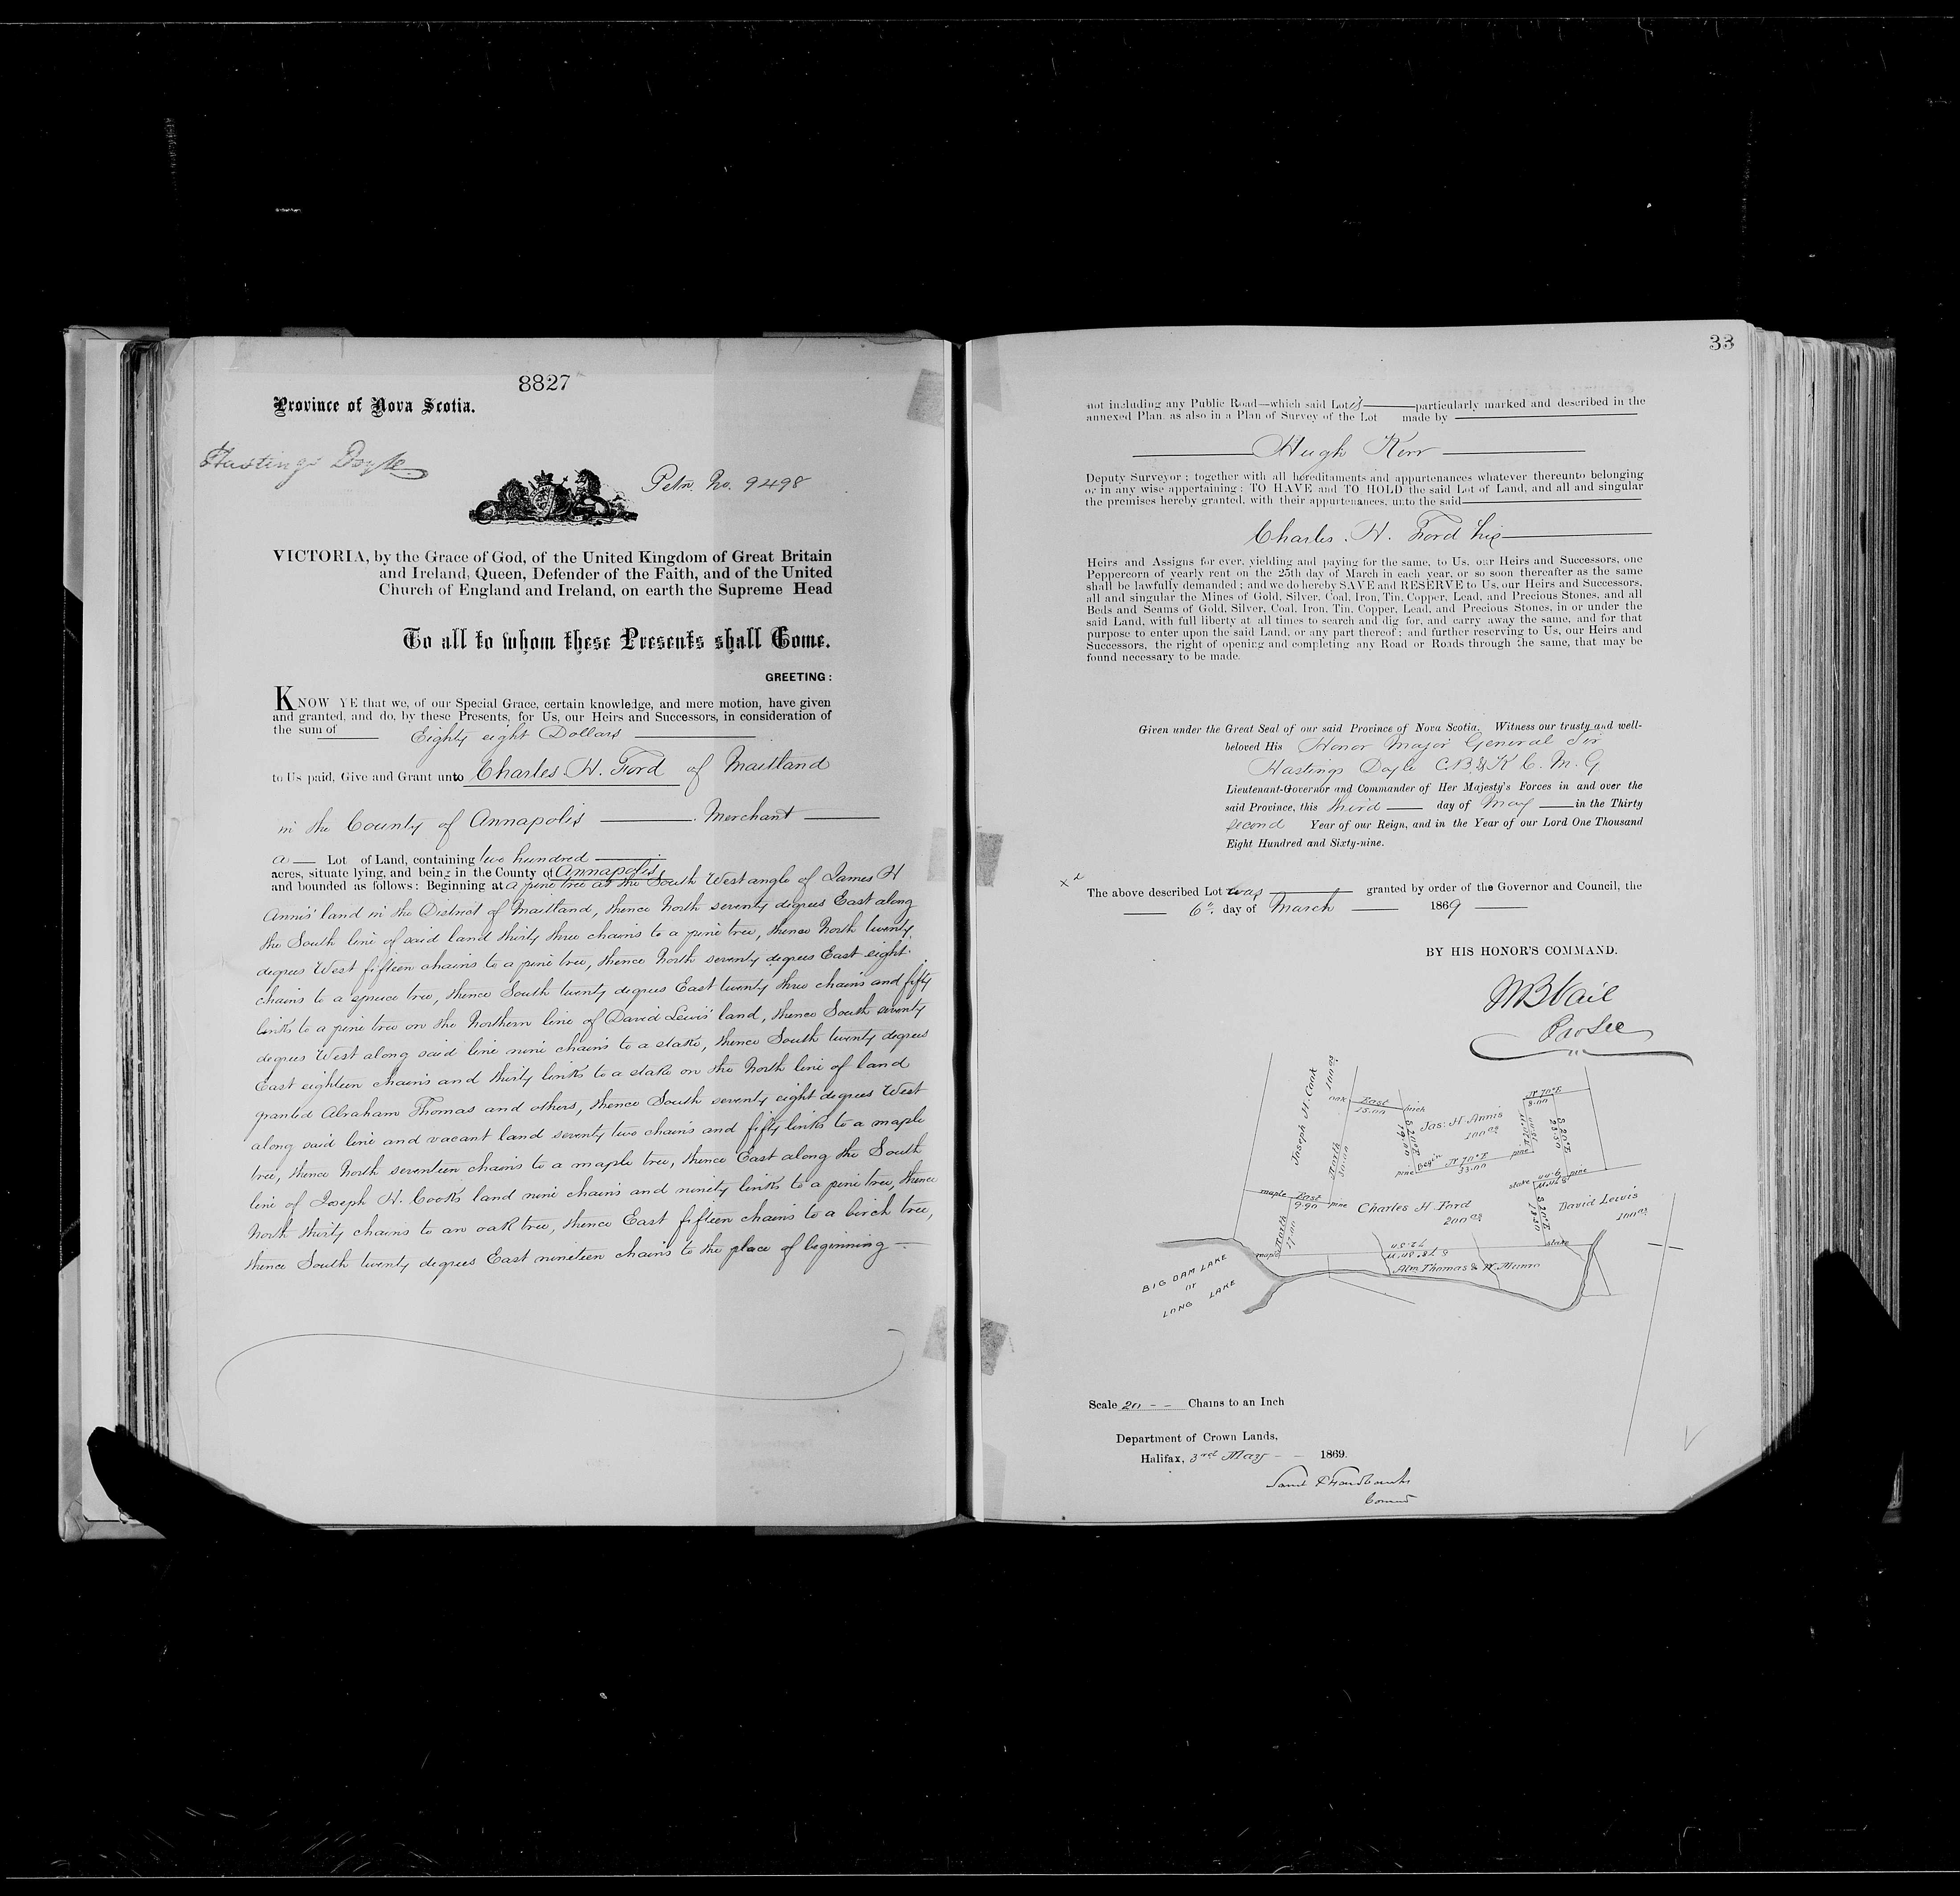 8827
Province of Nova Scotia.
Hastings Doyle
Petn. No. 9498
VICTORIA, by the Grace of God, of the United Kingdom of Great Britain
and Ireland, Queen, Defender of the Faith, and of the United
Church of England and Ireland, on earth the Supreme Head
To all to whom these Presents shall Come.
GREETING:
KNOW YE that we, of our Special Grace, certain knowledge, and mere motion, have given
and granted, and do, by these Presents, for Us, our Heirs and Successors, in consideration of
the sum of Eighty eight Dollars
to Us paid, Give and Grant unto Charles. H. Ford of Maitland
in the County of Annapolis Merchant
a Lot of Land, containing two hundred
acres, situate lying, and being in the County of Annapolis,
and bounded as follows: Beginning at a pine tree at the South West angle of James H
Annis' land in the District of Maitland, thence North seventy degrees East along
the South line of said land thirty three chains to a pine tree, thence North twenty
degrees West fifteen chains to a pine tree, thence North seventy degrees East eight
chains to a spruce tree, thence South twenty degrees East twenty three chains and fifty
links to a pine tree on the Northern line of David Lewis' land, thence South seventy
degrees West along said line nine chains to a stake, thence South twenty degrees
East eighteen chains and thirty links to a stake on the North line of land
granted Abraham Thomas and others, thence South seventy eight degrees West
along said line and vacant land seventy two chains and fifty links to a maple
tree, thence North seventeen chains to a maple tree, thence East along the South
line of Joseph H. Cooks land nine chains and ninety links to a pine tree, thence
North thirty chains to an oak tree, thence East fifteen chains to a birch tree,
thence South twenty degrees East nineteen chains to the place of beginning —
33
not including any Public Road—which said Lot is particularly marked and described in the
annexed Plan, as also in a Plan of Survey of the Lot made by
Hugh Kerr
Deputy Surveyor; together with all hereditaments and appurtenances whatever thereunto belonging
or in any wise appertaining: TO HAVE and TO HOLD the said Lot of Land, and all and singular
the premises hereby granted, with their appurtenances, unto the said
Charles. H. Ford his
Heirs and Assigns for ever, yielding and paying for the same, to Us, our Heirs and Successors, one
Peppercorn of yearly rent on the 25th day of March in each year, or so soon thereafter as the same
shall be lawfully demanded; and we do hereby SAVE and RESERVE to Us, our Heirs and Successors,
all and singular the Mines of Gold, Silver, Coal, Iron, Tin, Copper, Lead, and Precious Stones, and all
Beds and Seams of Gold, Silver, Coal, Iron, Tin, Copper, Lead, and Precious Stones, in or under the
said Land, with full liberty at all times to search and dig for, and carry away the same, and for that
purpose to enter upon the said Land, or any part thereof; and further reserving to Us, our Heirs and
Successors, the right of opening and completing any Road or Roads through the same, that may be
found necessary to be made.
Given under the Great Seal of our said Province of Nova Scotia. Witness our trusty and well-
beloved His Honor Major General Sir
Hastings Doyle C.B. & K. C. M. G
Lieutenant-Governor and Commander of Her Majesty's Forces in and over the
said Province, this third day of May in the Thirty
second Year of our Reign, and in the Year of our Lord One Thousand
Eight Hundred and Sixty-nine.
The above described Lot was granted by order of the Governor and Council, the
6" day of March 1869
BY HIS HONOR'S COMMAND.
W B Vail
Pro Sec
Joseph H. Cook
100 as
oak East birch
15.00
North
30.00
S 20° E
19.00
Jas: H Annis
100 as
N 70° E
8.00
S 20° E
23.50
pine Begin N 70° E pine
33.00
maple East pine
9.90
Charles H Ford
200 as
stake
S 70° W
9.00
pine
S 20° E
18.30
David Lewis
100 as
North
17.00
maple
S 78° W
72.50
stake
Abm Thomas & W. Munro
BIG DAM LAKE
or
LONG LAKE
Scale 20 Chains to an Inch
Department of Crown Lands,
Halifax, 3rd May 1869.